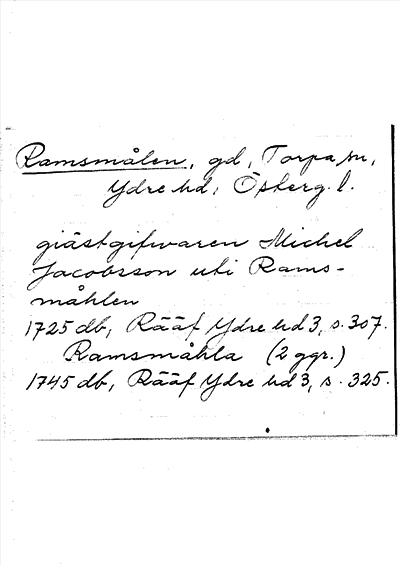 Ramsmålen, gd, Torpa sn,
Ydre hd, Östergl.
giästgifwaren Michel
Jacobsson uti Rams-
måhlen
1725 db, Rääf Ydre hd 3, s. 307.
Ramsmåhla (2 ggr.)
1745 db, Rääf Ydre hd 3, s. 325.